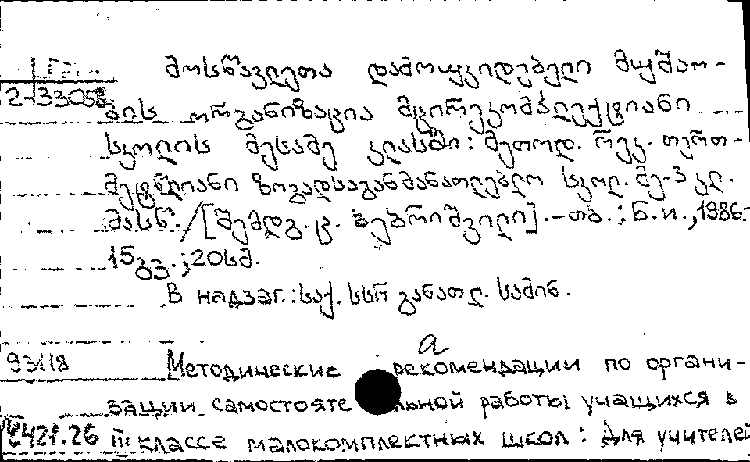 მოსწავლეთა დამოუკიდებელი მუშაო-
2-33058
ბის ორგანიზაცია მცირეკომპლექტიანი
სკოლის მესამე კლასში: მეთოდ. რეკ. თერთ-
მეტწლიანი ზოგადსაგანმანათლებლო სკოლ. მე-3 კლ.
მასწ. /[შემდგ. ც. ბებრიშვილი]. - თბ.: ნ.ი., 1986.-
15გვ.; 20სმ.
В надзаг.: საქ. სსრ განათლ. სამინ.
а
93118 Методические рекомендации по органи-
зации самостояте льной работы учащихся в
III классе малокомплектных школ: Для учителей